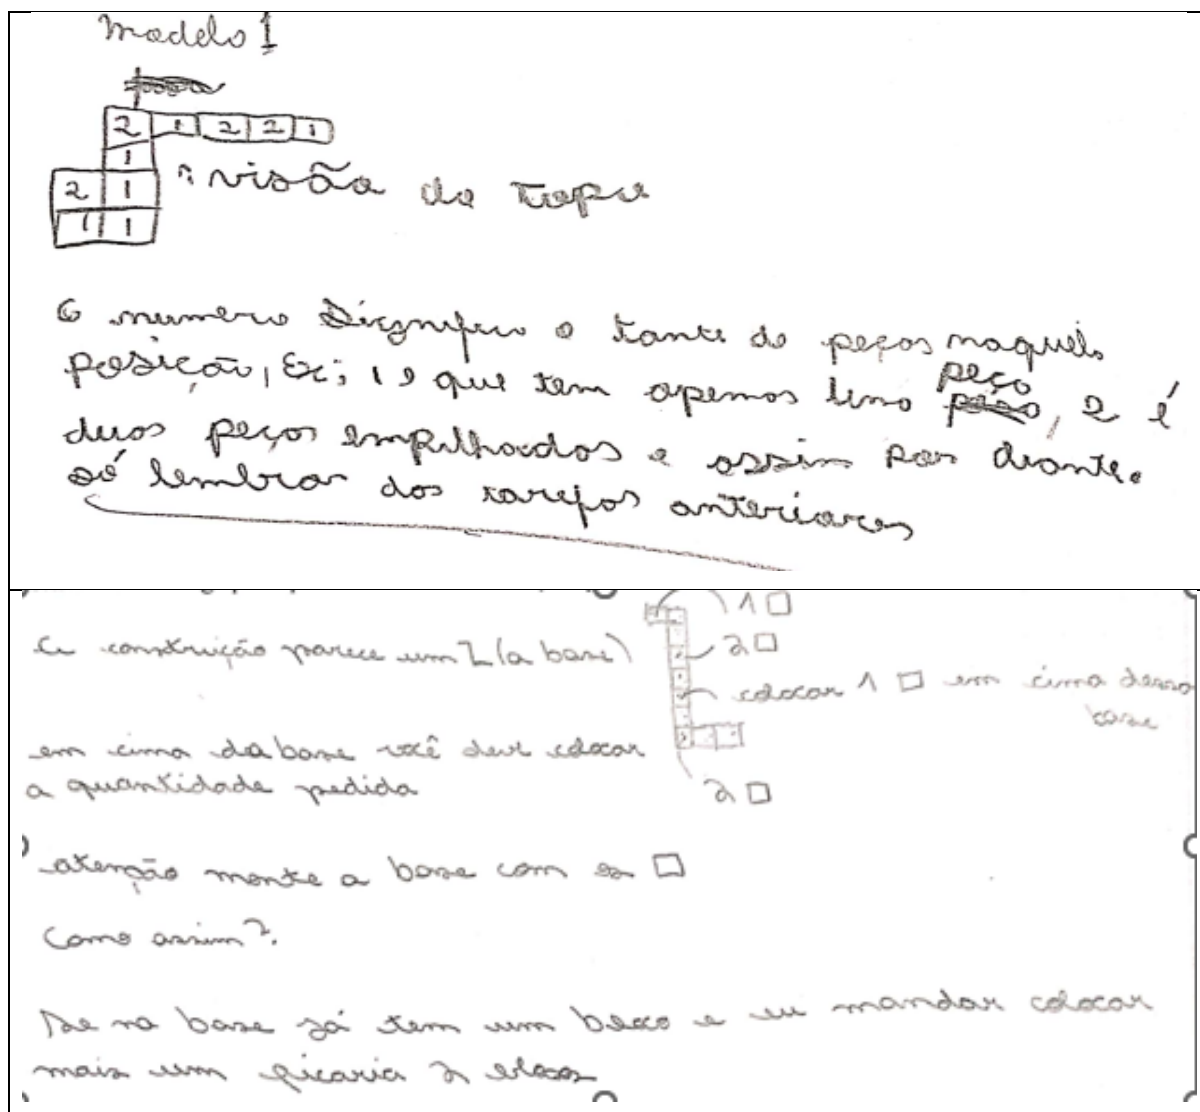 Modelo 1
2 1 2 2 1
1
2 1
1 1
: visão do topo
O numero Significa o tanto de peças naquela
posição, Ex: 1 é que tem apenas uma peça, 2 é
duas peças empilhadas e assim por diante.
só lembrar das tarefas anteriores
1 □
A construção parece um Z (a base)
2 □
colocar 1 □ em cima dessa
base
em cima da base você deve colocar
a quantidade pedida
2 □
atenção monte a base com os □
Como assim?.
Se na base já tem um bloco e eu mandar colocar
mais um ficaria 2 blocos